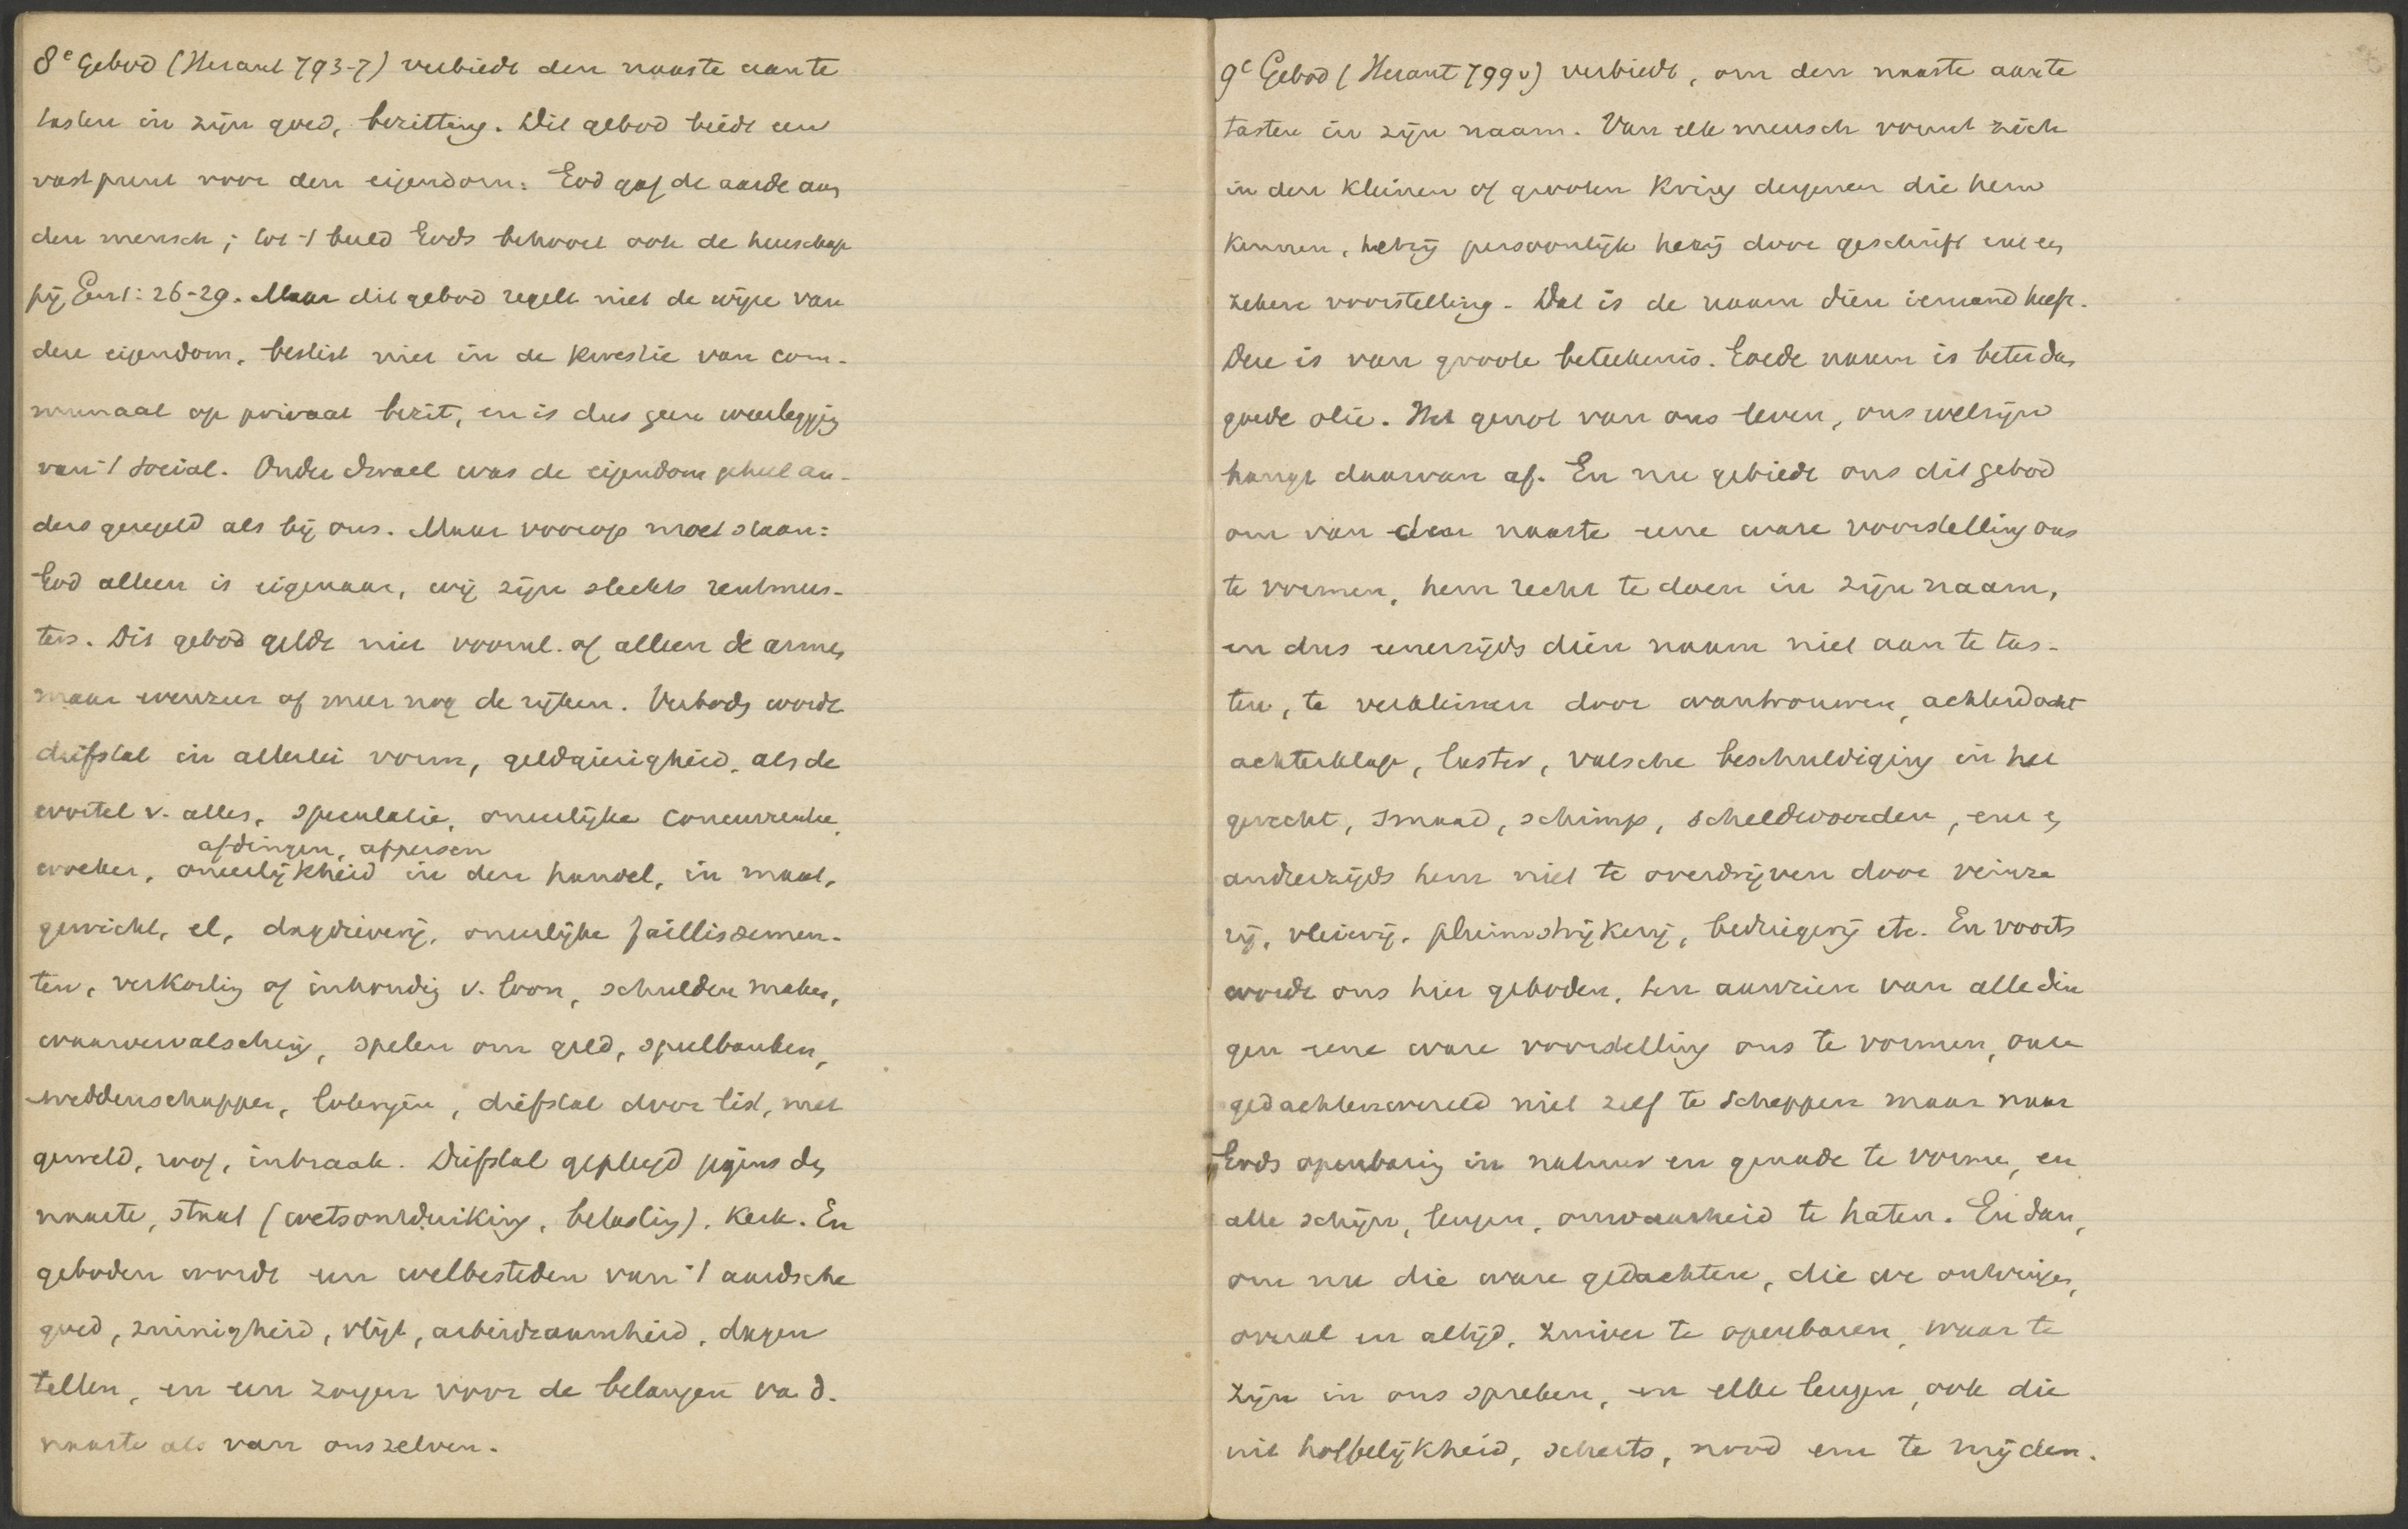 8e Gebod (Heraut 793-7) verbiedt den naaste aan te
tasten in zijn goed, bezitting. Dit gebod biedt een
vast punt voor den eigendom: God gaf de aarde aan
den mensch; tot 't beeld Gods behoort ook de heerschap
pij Gen 1: 26-29. Maar dit gebod regelt niet de wijze van
den eigendom, beslist niet in de kwestie van com-
munaal op privaat bezit, en is dus geen weerlegging
van 't social. Onder Israel was de eigendom geheel an-
ders geregeld als bij ons. Maar voorop moet staan:
God alleen is eigenaar, wij zijn slechts rentmees-
ters. Dit gebod geldt niet vooral. of alleen de armen,
maar evenzeer of meer nog de rijken. Verboden wordt
diefstal in allerlei vorm, geldgierigheid, als de
wortel v. alles, speculatie, oneerlijke concurrentie,
afdingen, afpersen
woeker, oneerlijkheid in den handel, in maat,
gewicht, el, dagdieverij, oneerlijke faillissemen-
ten, verkorting of inhouding v. loon, schulden maken,
waarvervalsching, spelen om geld, speelbanken,
weddenschappen, loterijen, diefstal door list, met
geweld, roof, inbraak. Diefstal gepleegd jegens den
naaste, staat (wetsontduiking, belasting), kerk. En
geboden wordt een welbesteden van 't aardsche
goed, zuinigheid, vlijt, arbeidzaamheid, dagen
tellen, en een zorgen voor de belangen va d.
naaste als van onszelven.
9e Gebod (Heraut 799v) verbiedt, om den naaste aan te
tasten in zijn naam. Van elk mensch vormt zich
in den kleinen of grooten kring dergenen die hem
kennen, hetzij persoonlijk hetzij door geschrift enz een
zekere voorstelling. Dat is de naam dien iemand heeft.
Deze is van groote beteekenis. Goede naam is beter dan
goede olie. Het genot van ons leven, ons welzijn
hangt daarvan af. En nu gebiedt ons dit gebod
om van den naaste eene ware voorstelling ons
te vormen, hem recht te doen in zijn naam,
en dus eenerzijds dien naam niet aan te tas-
ten, te verkleinen door wantrouwen, achterdocht
achterklap, laster, valsche beschuldiging in het
gerecht, smaad, schimp, scheldwoorden, enz en
anderzijds hem niet te overdrijven door veinze
rij, vleierij, pluimstrijkerij, bedriegerij etc. En voorts
wordt ons hier geboden, ten aanzien van alle din
gen eene ware voorstelling ons te vormen, onze
gedachtenwereld niet zelf te scheppen maar naar
Gods openbaring in natuur en genade te vormen, en
alle schijn, leugen, onwaarheid te haten. En dan,
om nu die ware gedachten, die we ontvingen,
overal en altijd, zuiver te openbaren, waar te
zijn in ons spreken, en elke leugen, ook die
uit hoffelijkheid, scherts, nood enz te mijden.